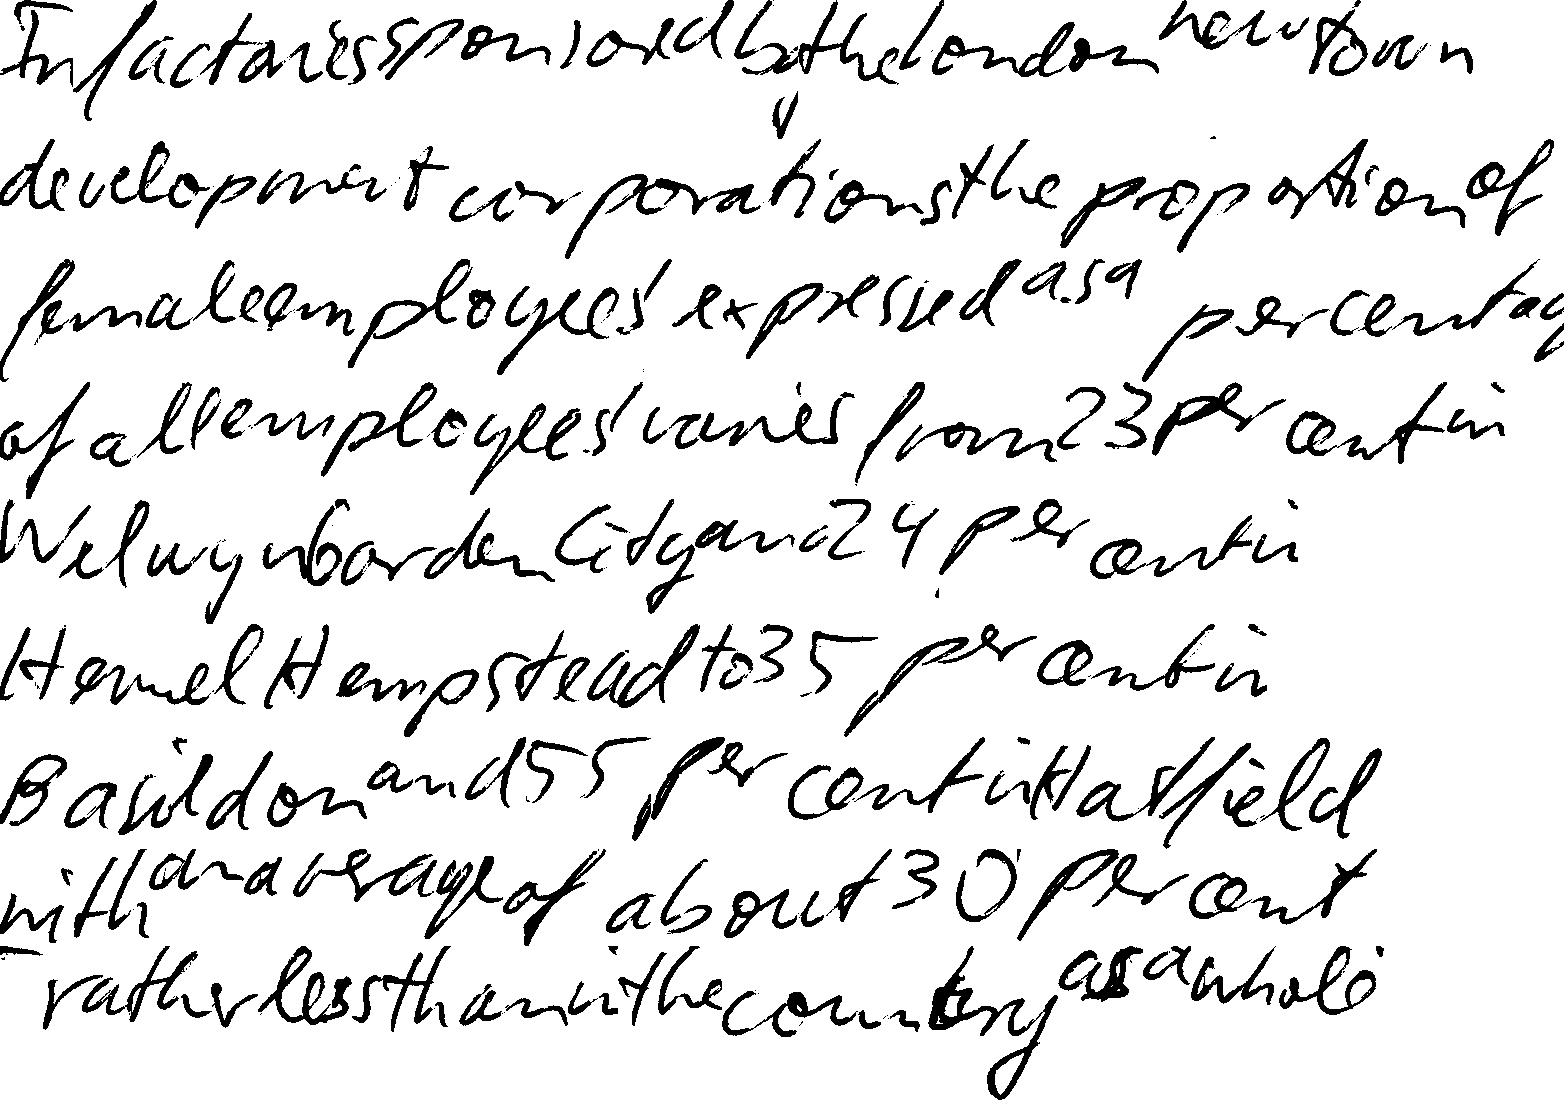 In factories sponsored by the London new town
development corporations the proportion of
female employees expressed as a percentag
of all employees varies from 23 per cent in
Welwyn Garden City and 24 per cent in
Hemel Hempstead to 35 per cent in
Basildon and 55 per cent in Hatfield
with an average of about 30 per cent
- rather less than in the country as a whole